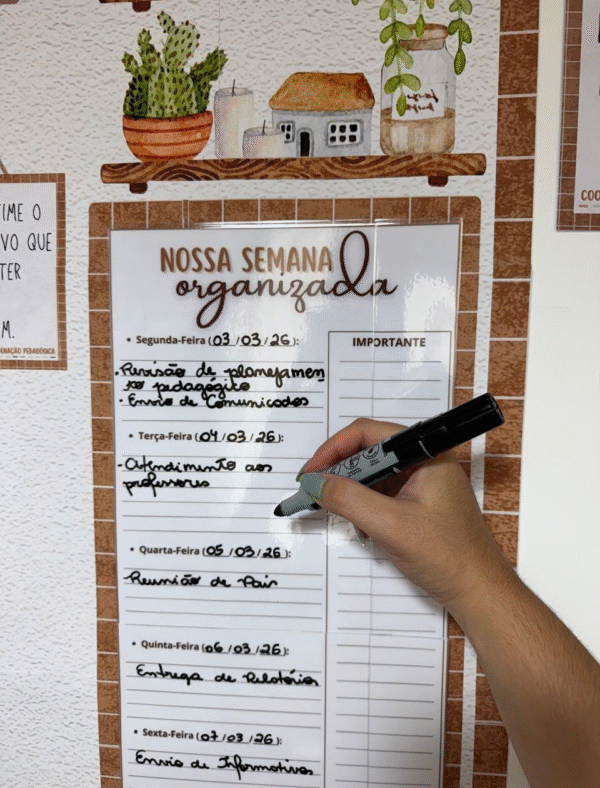 TIME O
VO QUE
TER
M.
ENAÇÃO PEDAGÓGICA
COO
NOSSA SEMANA
organizada
• Segunda-Feira (03/03/26):
IMPORTANTE
-Revisão de planejamen
to pedagógico
- Envio de Comunicados
• Terça-Feira (04/03/26):
-Atendimento aos
professores
• Quarta-Feira (05/03/26):
Reunião de Pais
• Quinta-Feira (06/03/26):
Entrega de Relatórios
• Sexta-Feira (07/03/26):
Envio de Informativos